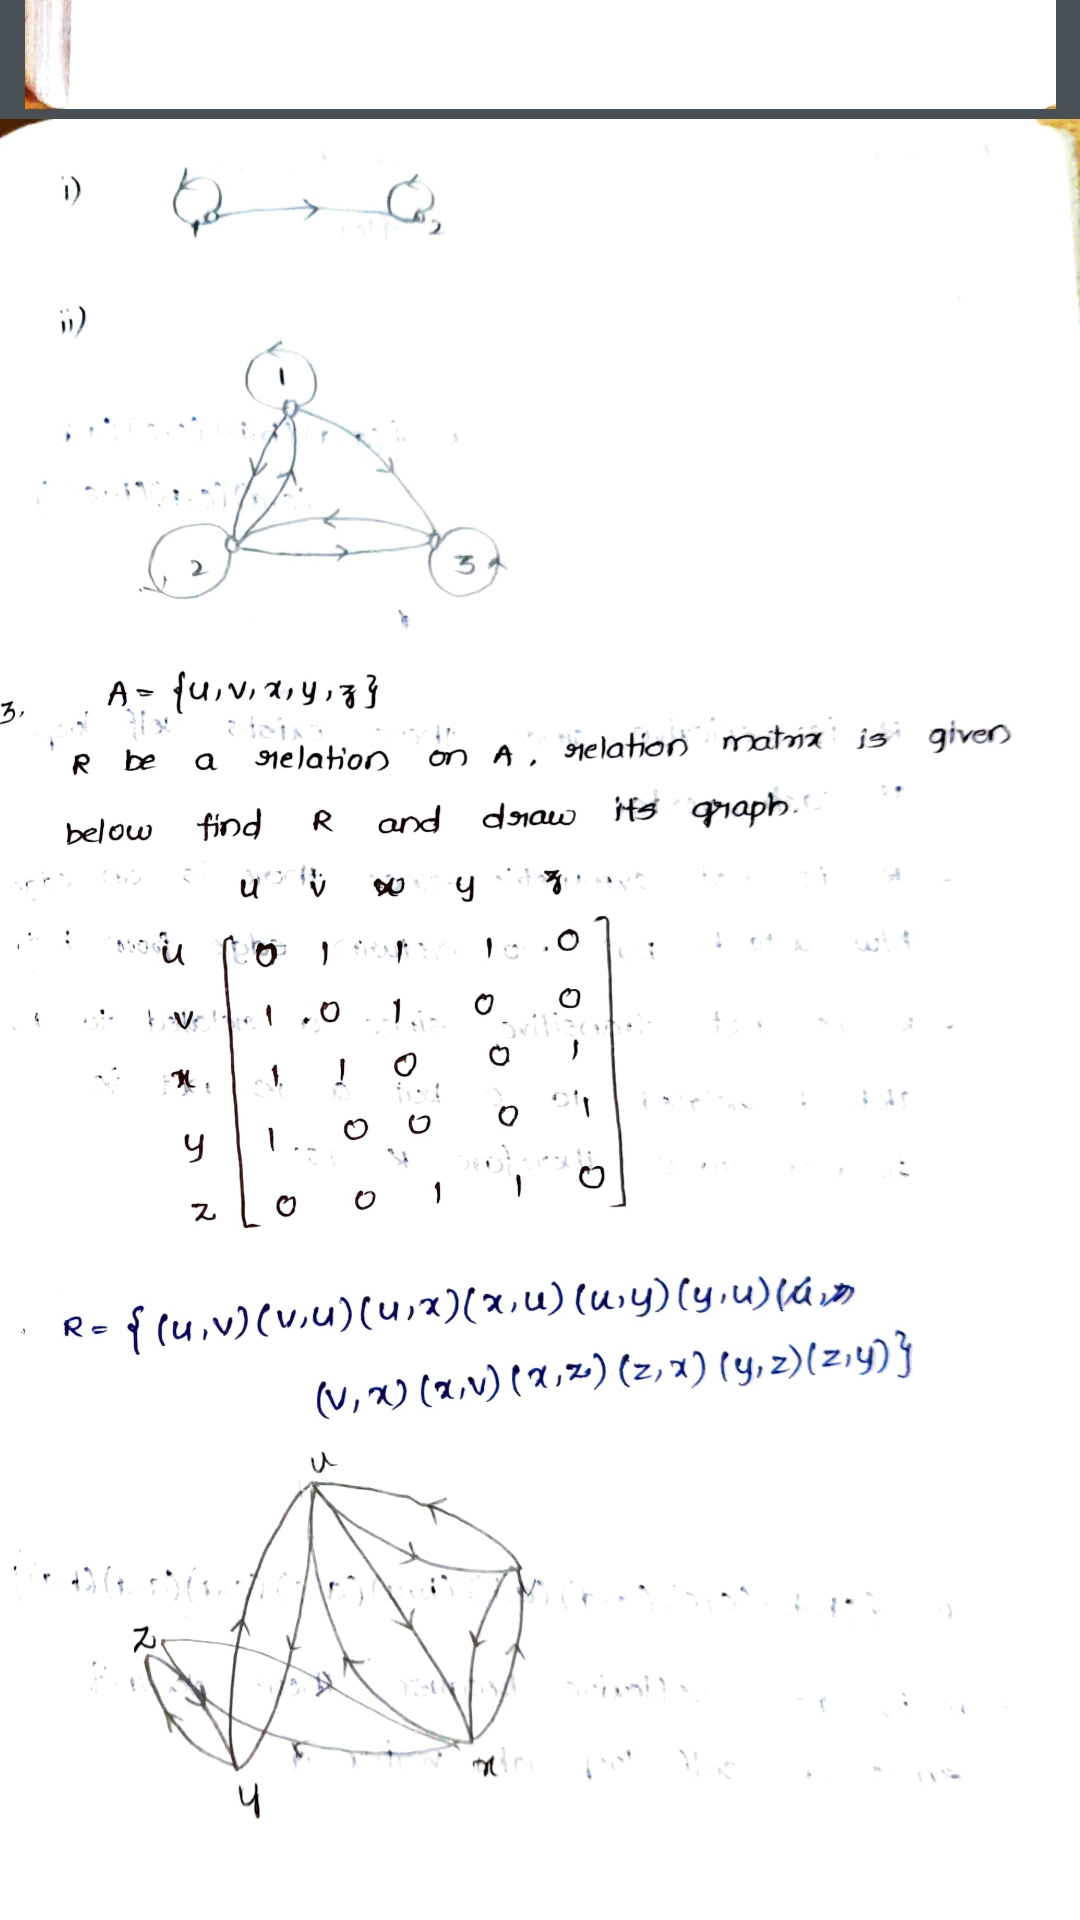 i)
1 2
ii)
1
2 3
3. A = {u, v, x, y, z}
R be a relation on A, relation matrix is given
below find R and draw its graph.
u v x y z
u 0 1 1 1 0
v 1 0 1 0 0
x 1 1 0 0 1
y 1 0 0 0 1
z 0 0 1 1 0
R = { (u,v) (v,u) (u,x) (x,u) (u,y) (y,u)
(v,x) (x,v) (x,z) (z,x) (y,z) (z,y) }
u
v
z
x
y